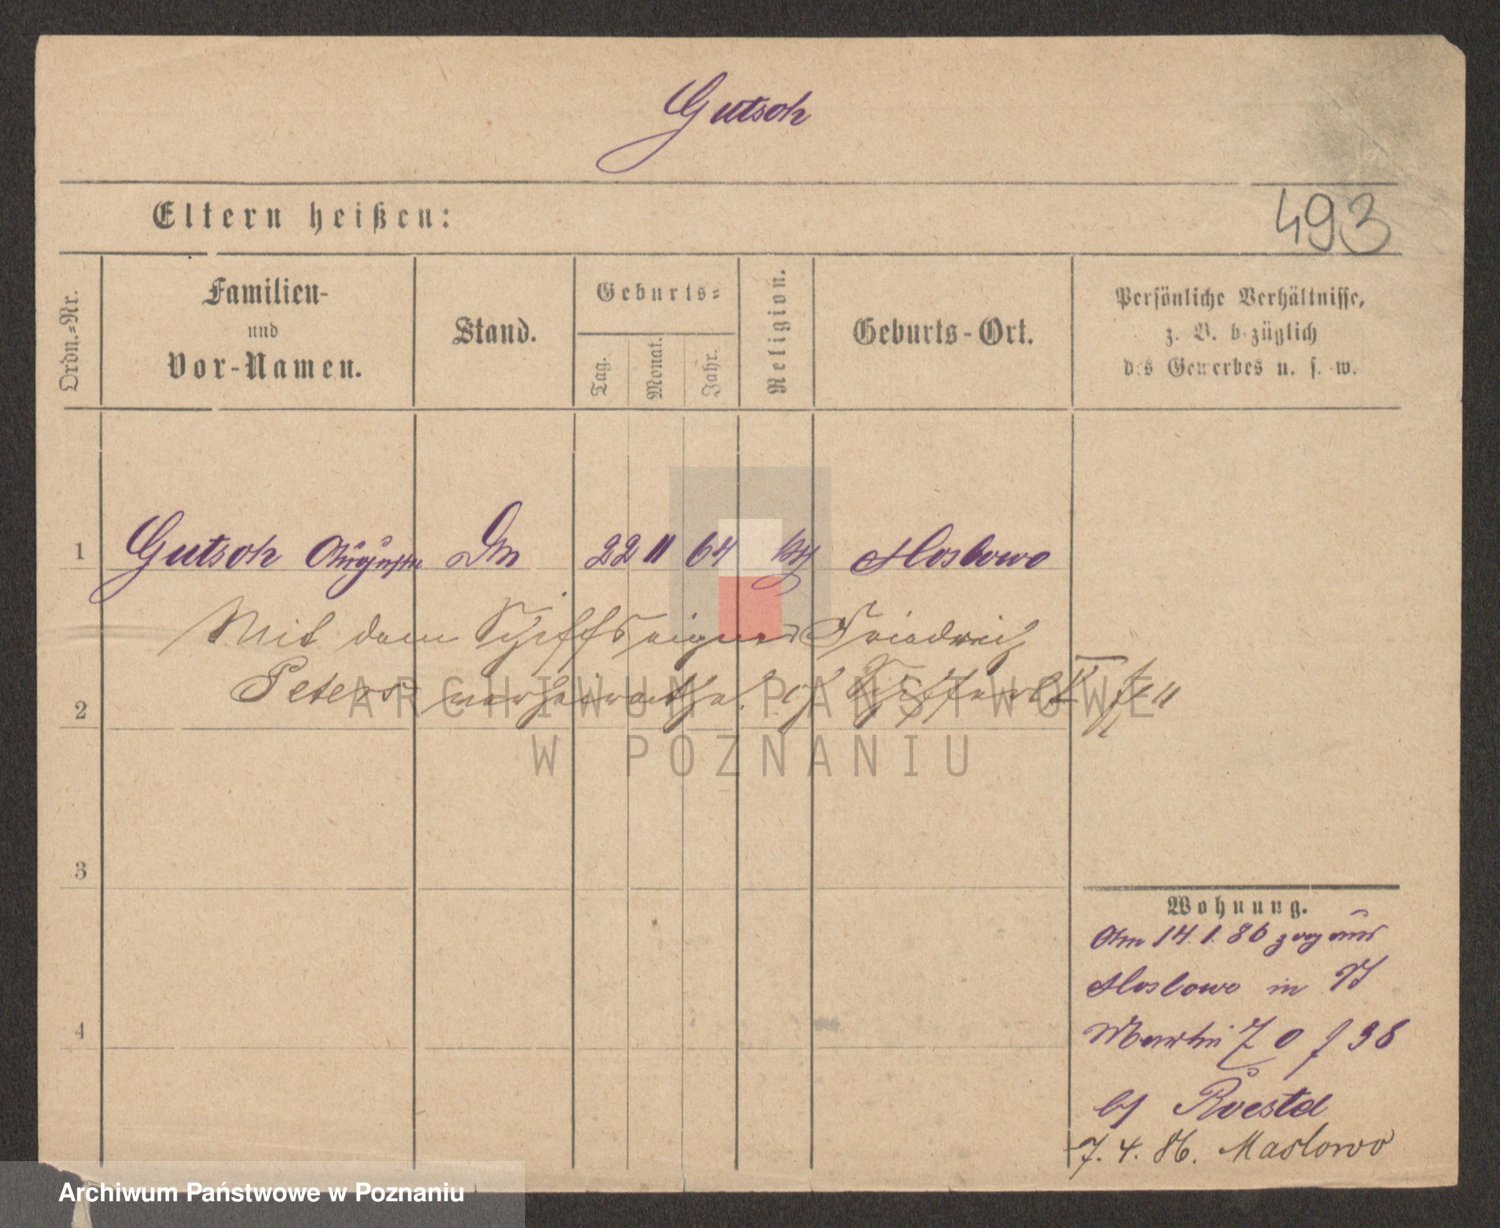 Gutsch
Eltern heißen:
493
Ordn.-Nr.
Familien-
und
Vor-Namen.
Stand.
Geburts-
Tag.
Monat.
Jahr.
Religion.
Geburts-Ort.
Persönliche Verhältnisse,
z. B. bezüglich
des Gewerbes u. s. w.
1 Gutsch Auguste 22 11 64
Mit dem Schiffseigner Friedrich
Peters verheirathet.
2
ARCHIWUM PAŃSTWOWE
W POZNANIU
3
4
Wohnung.
Am 14. 1. 86 zog aus
in
Martin
7. 4. 86. Maslowo
Archiwum Państwowe w Poznaniu